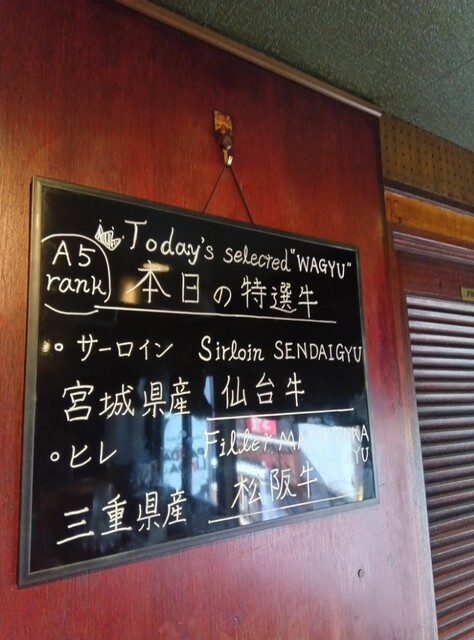 A5 rank
Today's selected "WAGYU"
本日の特選牛
• サーロイン Sirloin SENDAIGYU
宮城県産 仙台牛
• ヒレ Fillet
三重県産 松阪牛